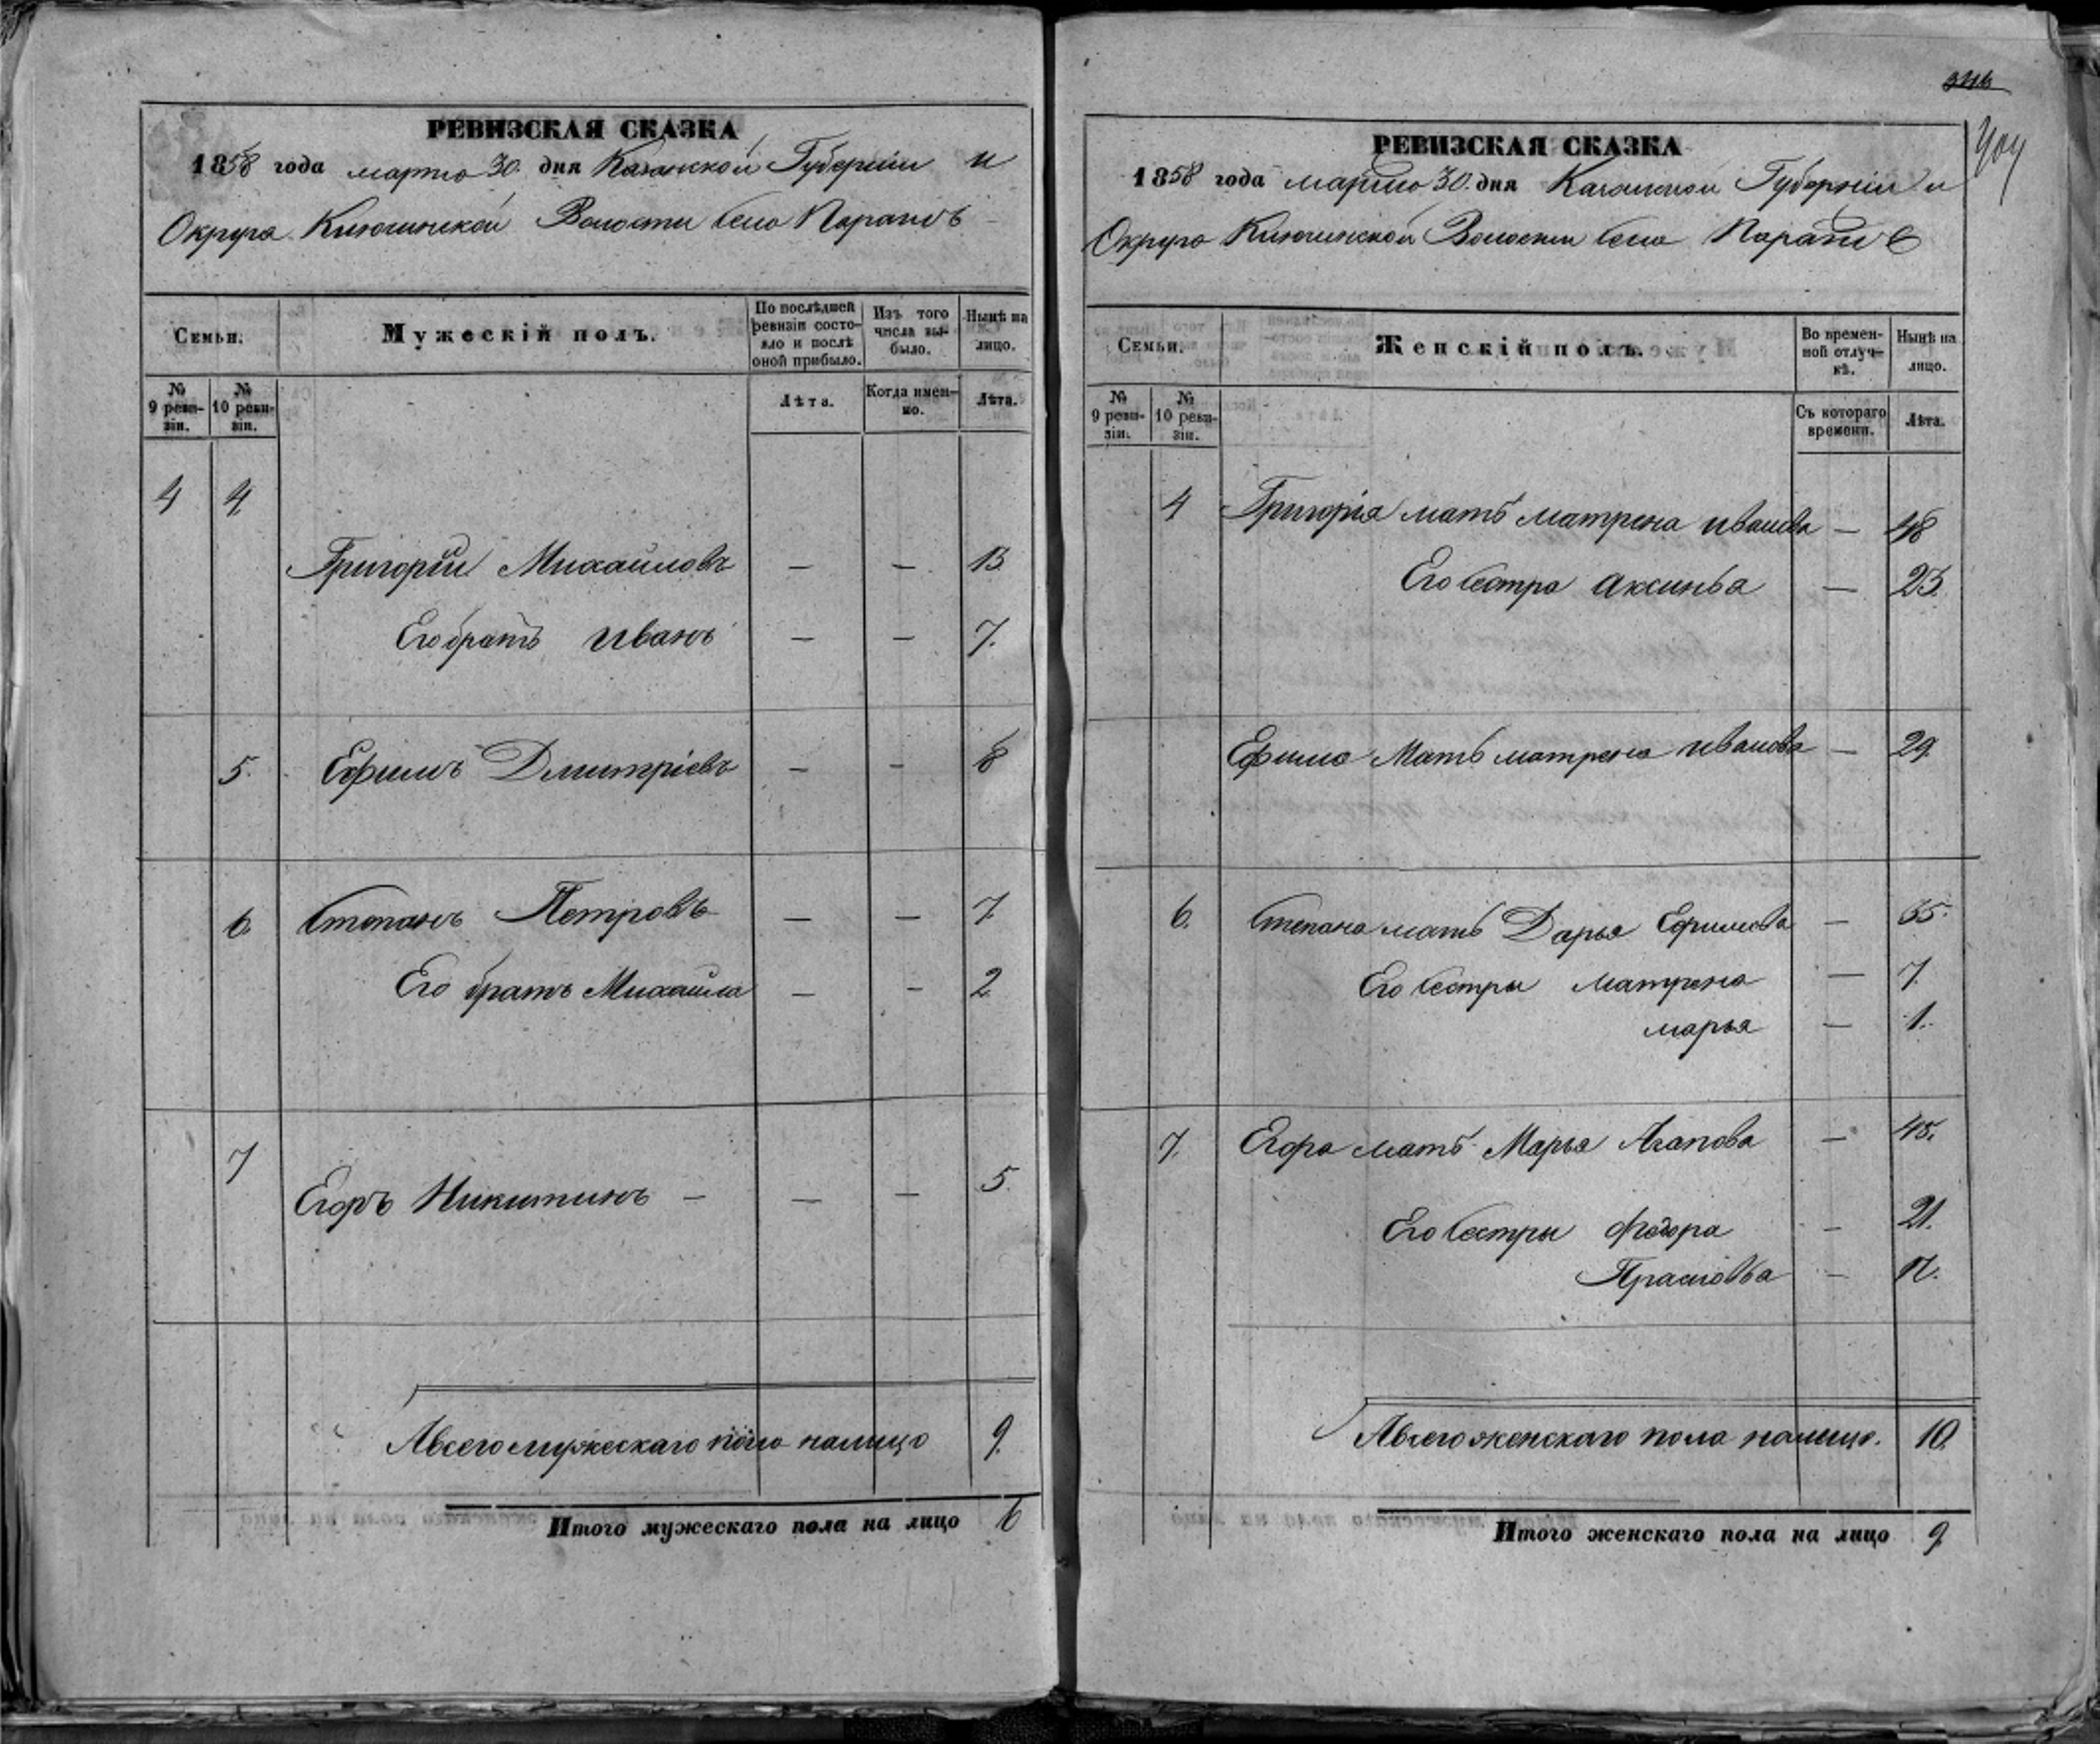 РЕВИЗСКАЯ СКАЗКА
1858 года марта 30. дня Казанской Губерніи и
Округа Ключинской Волости села Паратъ
Семьи.
Мужескій полъ.
По послѣдней ревизіи состояло и послѣ оной прибыло.
Изъ того числа выбыло.
Нынѣ на лицо.
№ 9 ревизіи.
№ 10 ревизіи.
Лѣта.
Когда именно.
Лѣта.
4 4
Григорій Михайловъ — — 13
Его братъ Иванъ — — 7.
5. Ефимъ Дмитріевъ — — 8
6. Степанъ Петровъ — — 7
Его братъ Михайла — — 2
7 Егоръ Никитинъ — — — 5.
А всего мужескаго пола налицо 9.
Итого мужескаго пола на лицо 6
346
РЕВИЗСКАЯ СКАЗКА
1858 года марта 30. дня Казанской Губерніи и
Округа Ключинской Волости села Паратъ
Семьи.
Женскій полъ.
Во временной отлучкѣ.
Нынѣ на лицо.
№ 9 ревизіи.
№ 10 ревизіи.
Съ котораго времени.
Лѣта.
4 Григорія мать Матрена Иванова — 48
Его сестра Аксинья — 23.
Ефима Мать Матрена Иванова — 29.
6. Степана мать Дарья Ефимова — 35.
Его сестры Матрена — 7.
Марья — 1.
7. Егора мать Марья Агапова — 45.
Его сестры Федора — 21.
Прасковья — 12.
А всего женскаго пола налицо. 10.
Итого женскаго пола на лицо 9